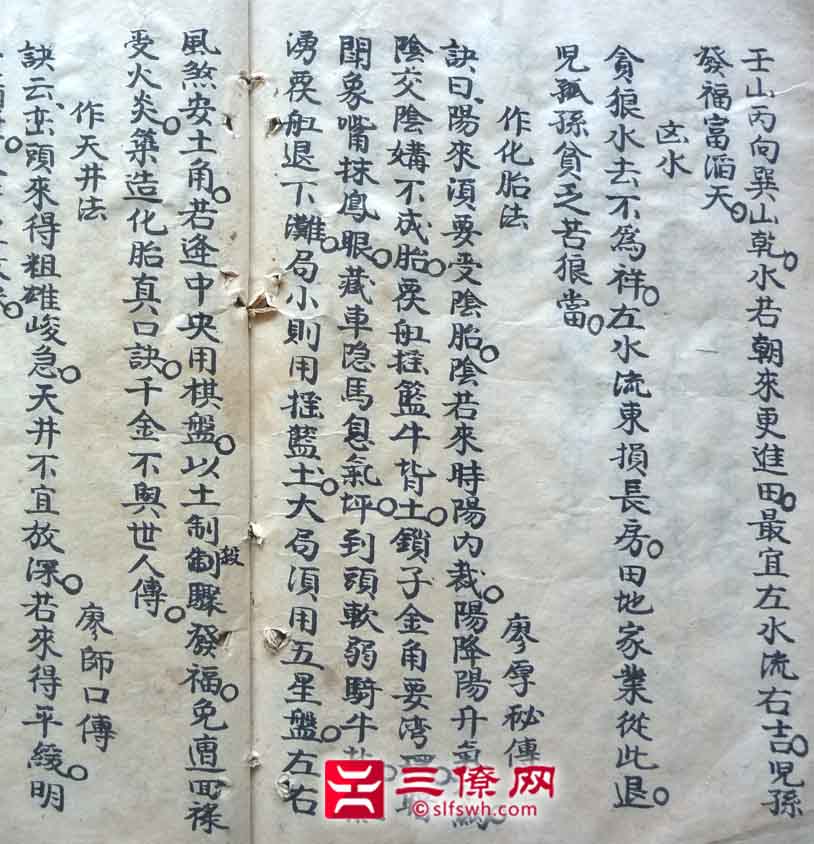 壬山丙向巽山乾水若朝來更進田最宜左水流右吉児孫
發福富滔天
凶水
貪狼水去不爲祥左水流東損長房田地家業從此退
児孤孫貧乏苦狼當
作化胎法
廖厚秘傳
訣曰陽來湏要受陰胎陰若來時陽內裁陽降陽升氣
陰交陰媾不成胎
籃牛背土鎖子金角要湾
象嘴抹鳳眼藏車隐馬息氣坪到頭軟弱騎牛
湧
退下灘局小則用
籃土大局湏用五星盤左右
風煞安土角若逢中央用棋盤以土制制煞驟發福免遭回祿
受火炎築造化胎真口訣千金不與世人傳
作天井法
廖師口傳
訣云巒頭來得粗雄峻急天井不宜放深若來得平緩明
三僚网
©slfswh.com